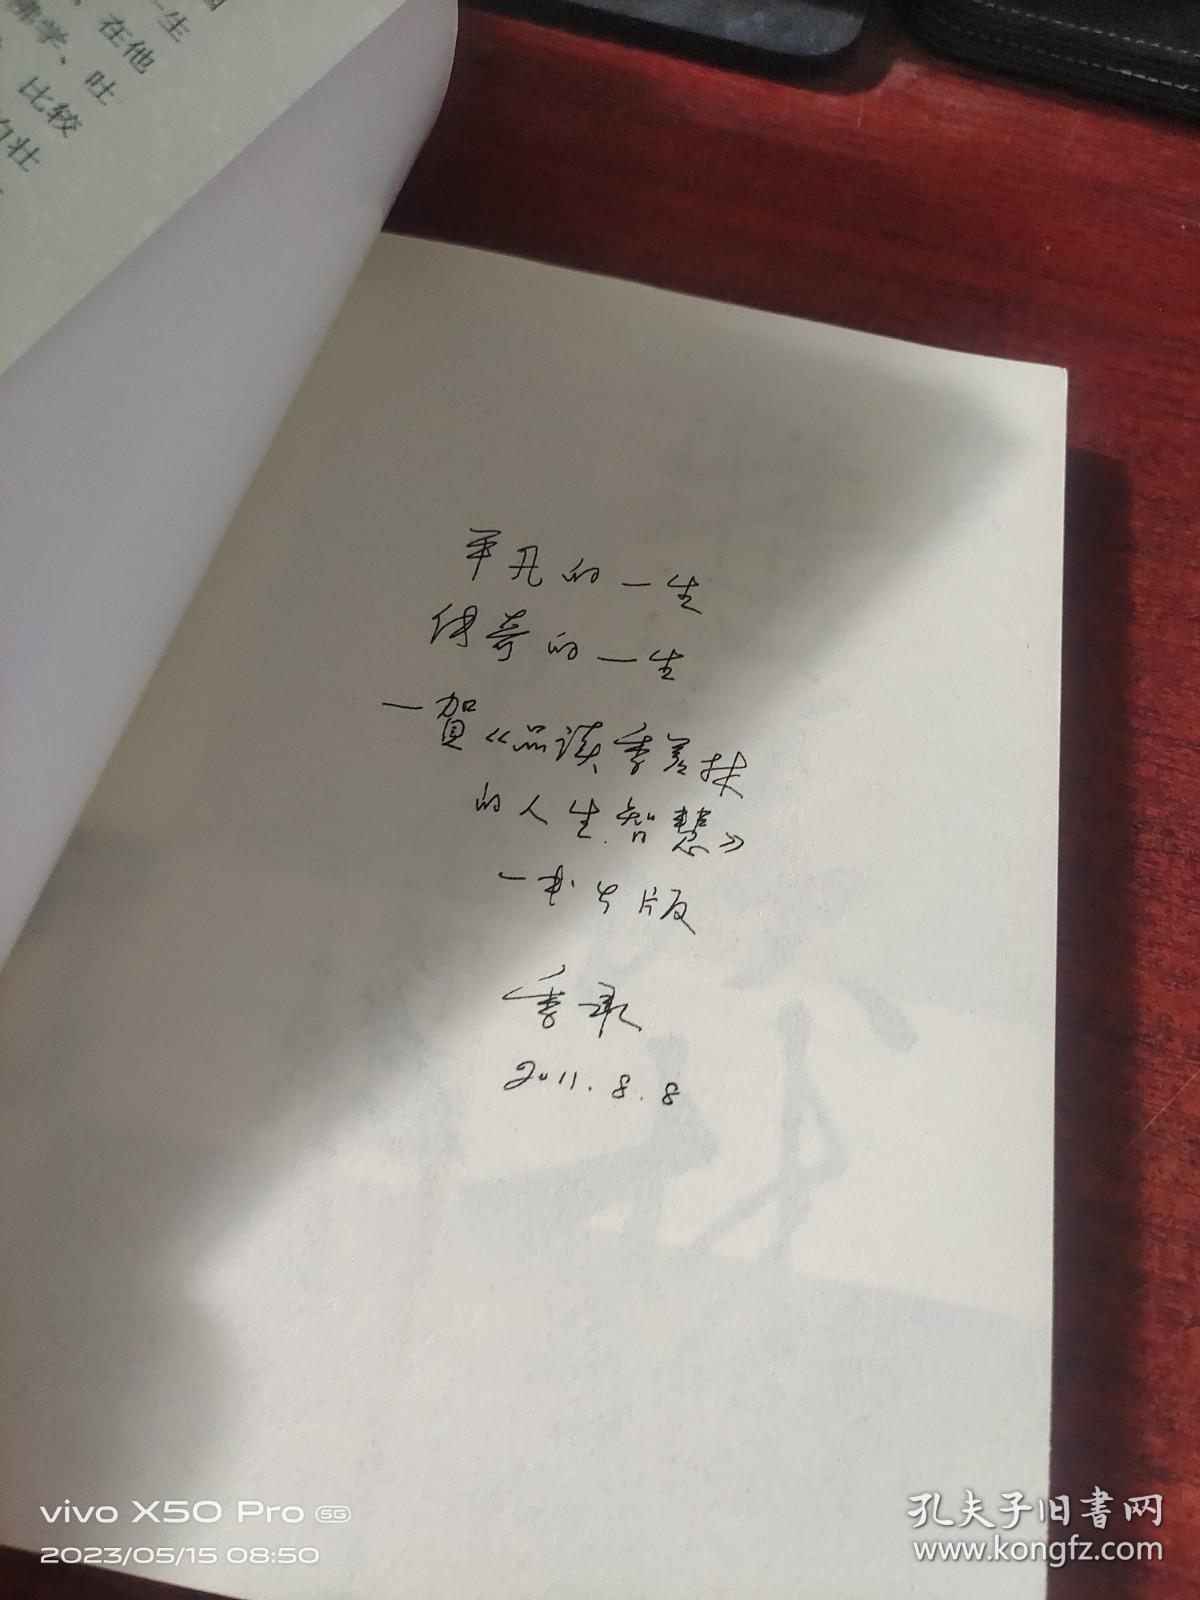 一生
在他
佛学、吐
比较
的壮
平凡的一生
传奇的一生
—贺《品读季羡林
的人生智慧》
一书出版
季承
2011.8.8
vivo X50 Pro 5G
2023/05/15 08:50
孔夫子旧书网
www.kongfz.com